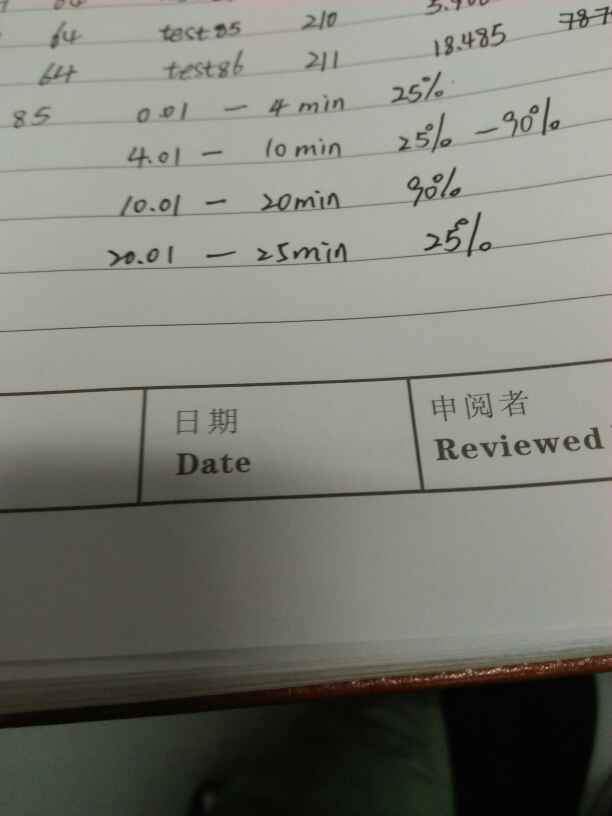 64 test85 210
64 test86 211 18.485
85 0.01 - 4 min 25%
4.01 - 10 min 25% - 90%
10.01 - 20min 90%
20.01 - 25min 25%
日期 申阅者
Date Reviewed